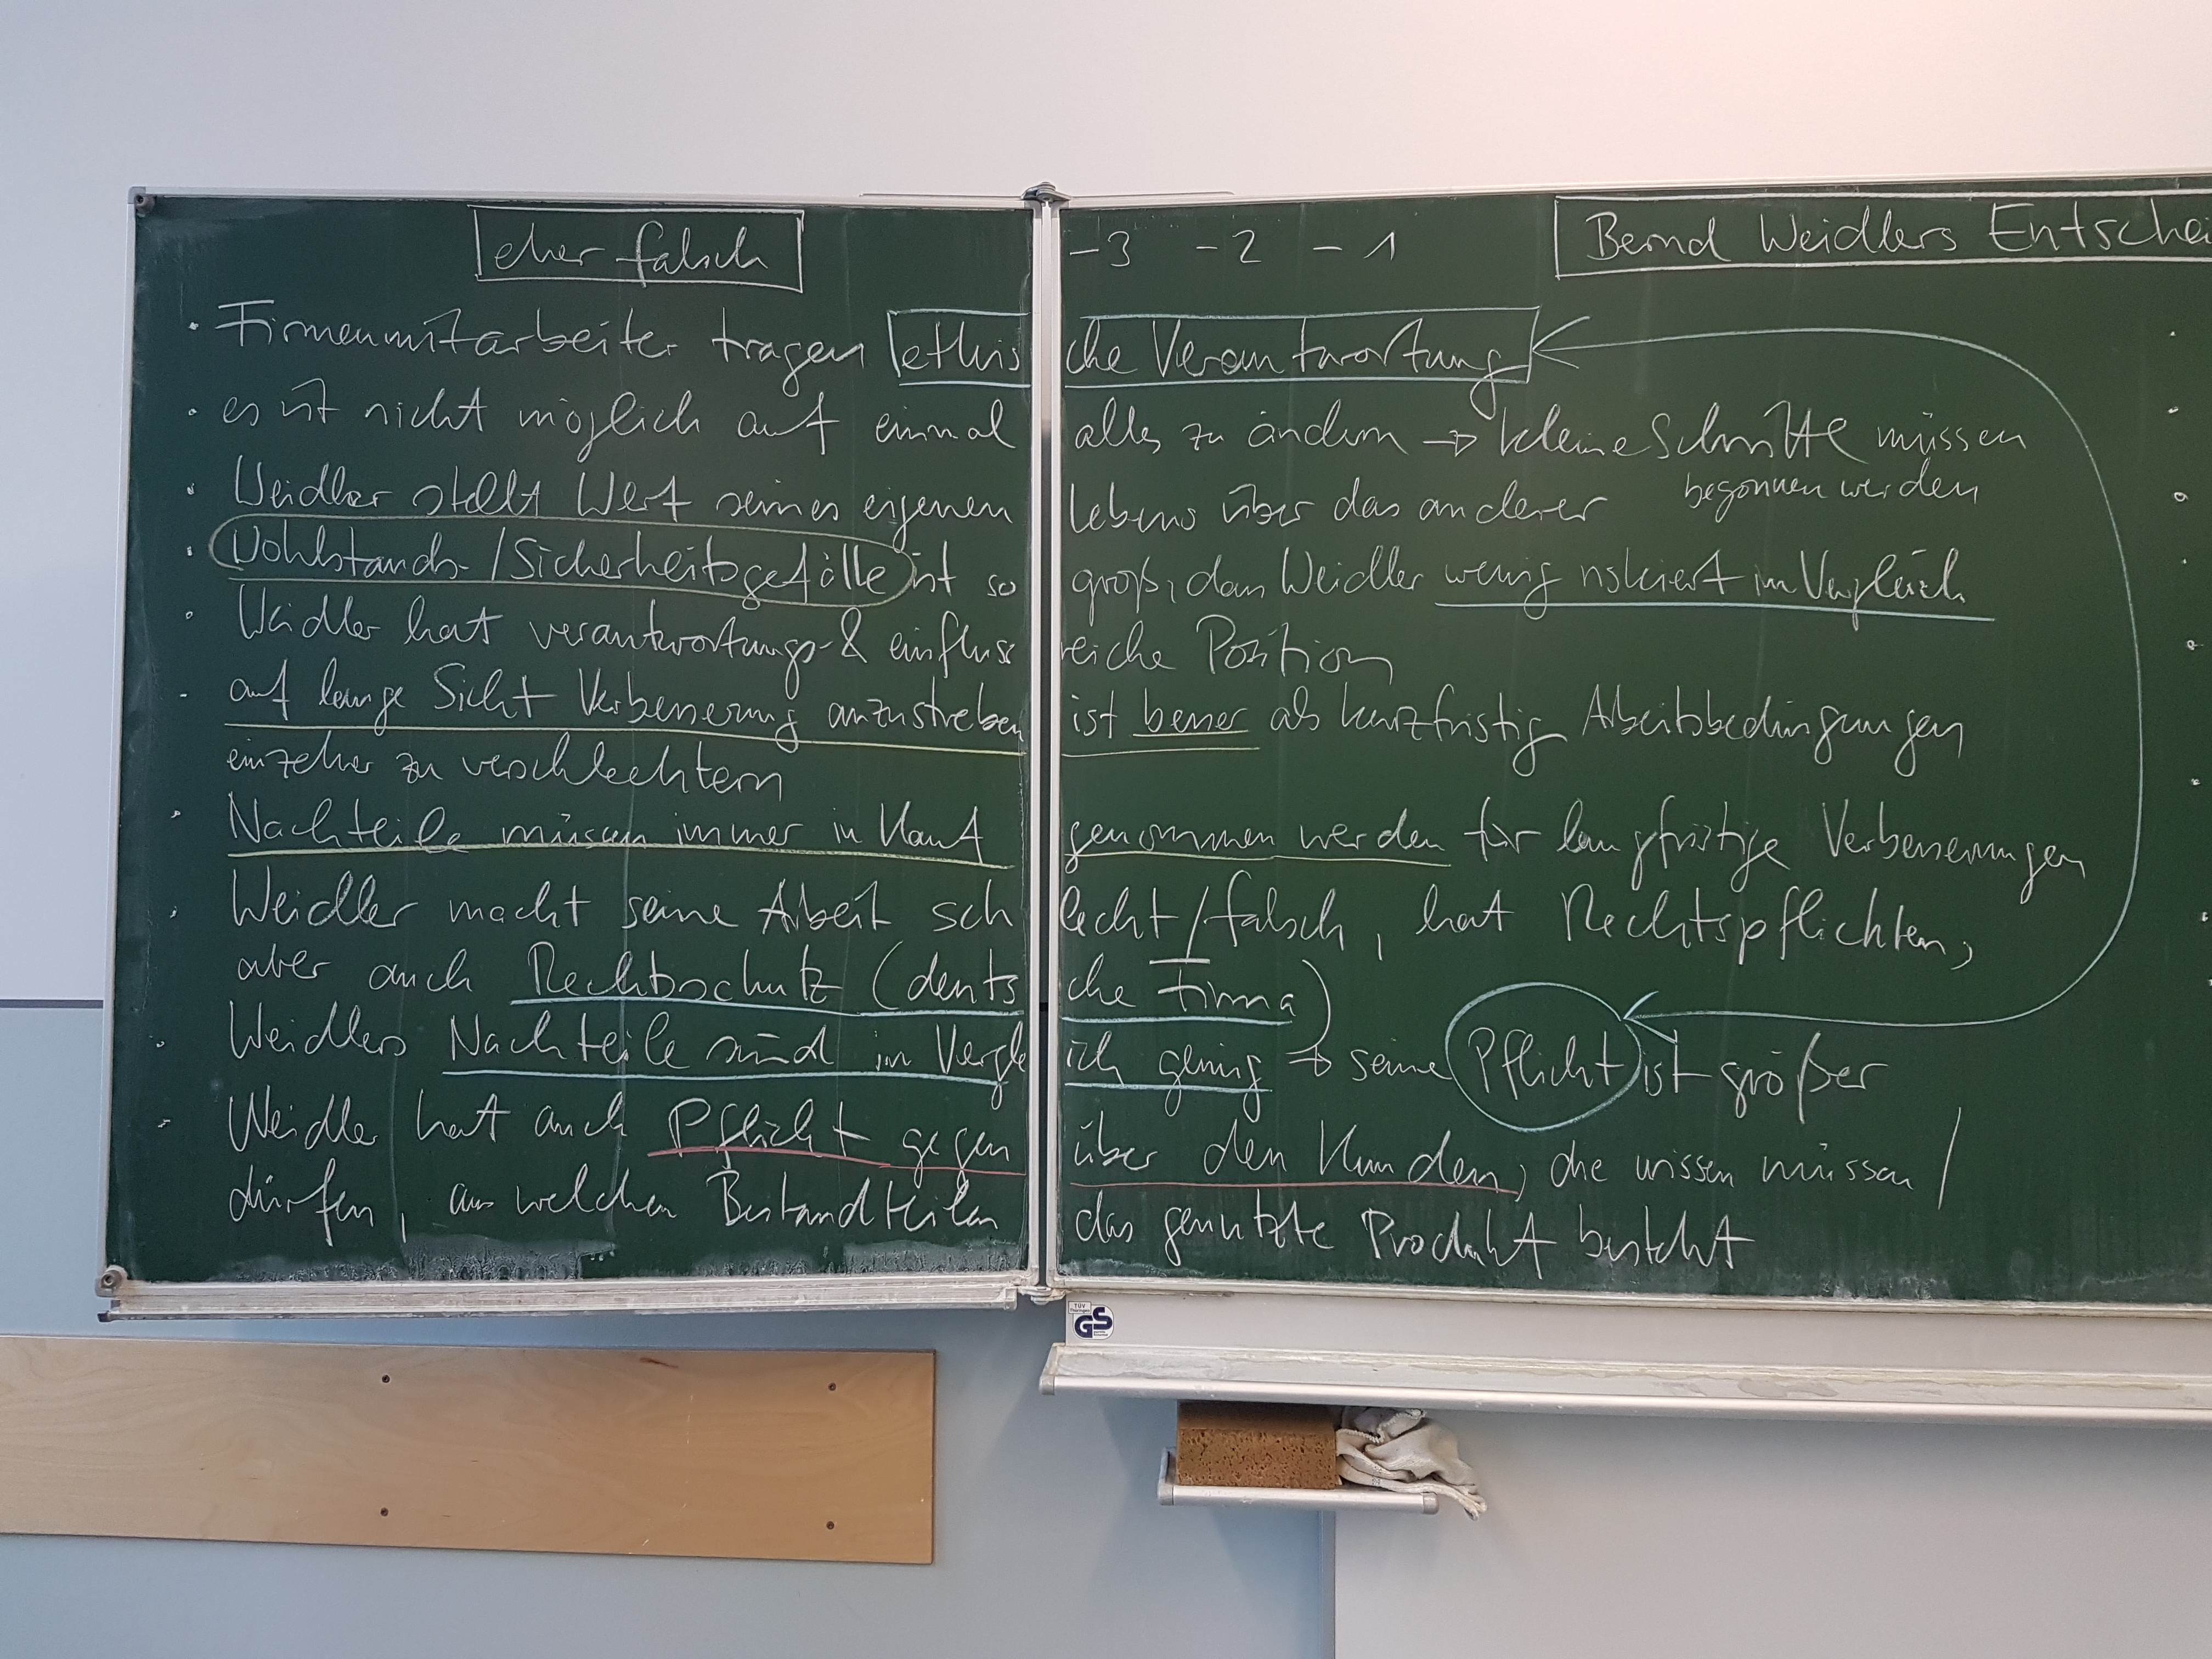 eher falsch -3 -2 -1 Bernd Weidlers Entschei
• Firmenmitarbeiter tragen ethische Verantwortung
• es ist nicht möglich auf einmal alles zu ändern → kleine Schritte müssen
begonnen werden
• Weidler stellt Wert seines eigenen Lebens über das anderer
• Wohlstands-/Sicherheitsgefälle ist so groß, dass Weidler wenig riskiert im Vergleich
• Weidler hat verantwortungs- & einflussreiche Position
- auf lange Sicht Verbesserung anzustreben ist besser als kurzfristig Arbeitsbedingungen
einzelner zu verschlechtern
• Nachteile müssen immer in Kauf genommen werden für langfristige Verbesserungen
• Weidler macht seine Arbeit schlecht/falsch, hat Rechtspflichten,
aber auch Rechtsschutz (deutsche Firma)
• Weidlers Nachteile sind im Vergleich gering → seine Pflicht ist größer
- Weidler hat auch Pflicht gegenüber den Kunden, die wissen müssen/
dürfen, aus welchen Bestandteilen das genutzte Produkt besteht
TÜV
GS